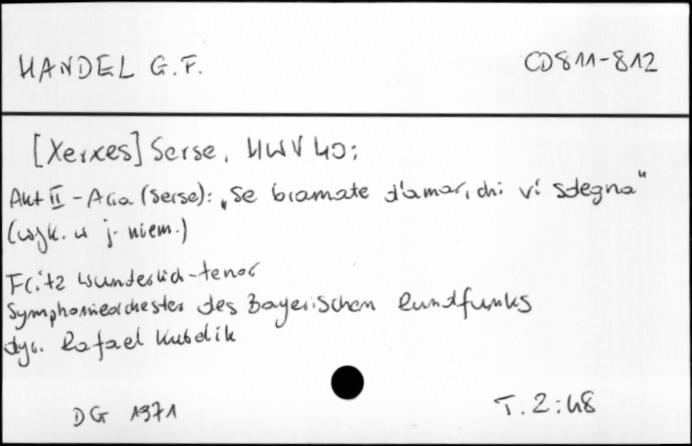 HANDEL G.F. CD811-812
[Xerxes] Serse, HWV 40;
Akt II - Aria (Serse): „Se bramate d'amar, chi vi sdegna"
(wyk. w j. niem.)
Fritz Wunderlich - tenor
Symphonieorchester des Bayerischen Rundfunks
dyr. Rafael Kubelik
DG 1971 T. 2:48